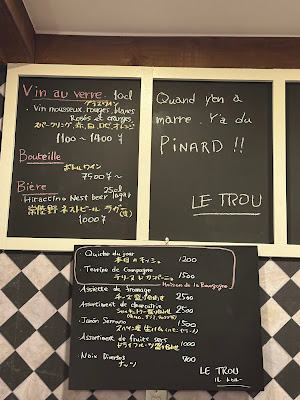 Vin au verre 10cl
グラスワイン
. Vin mousseux, rouges, blancs
Rosés et oranges
スパークリング, 赤, 白, ロゼ, オレンジ
1100 ~ 1400 ¥
Bouteille
ボトルワイン
7500 ¥ ~
Bière 25cl
Hitaccino Nest beer lager
常陸野 ネストビール ラガー
1000 ¥
Quand y'en a
marre. Y'a du
PINARD !!
LE TROU
. Quiche du jour
本日のキッシュ 1200
. Terrine de Campagne
テリーヌ ド カンパーニュ 1500
Maison de la Bourgogne
Assiette de fromage
チーズ盛り合わせ 2500
Assortiment de charcuterie
シャルキュトリー盛り合わせ 2500
. Janón Serrano 1500
スペイン産 生ハム
. Assortiment de fruits secs
ドライフルーツ盛り合わせ 1000
. Noix Diverses
ナッツ 700
LE TROU